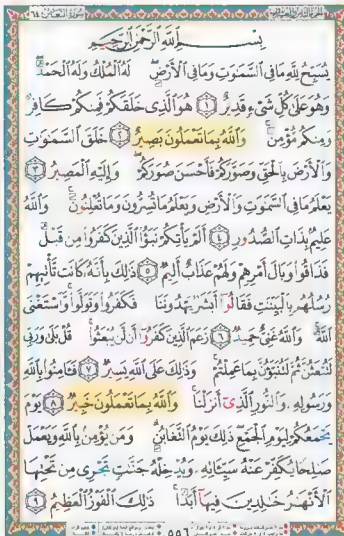 سورة التغابن ٦٤
بِسْمِ اللَّهِ الرَّحْمَٰنِ الرَّحِيمِ
يُسَبِّحُ لِلَّهِ مَا فِي السَّمَٰوَٰتِ وَمَا فِي الْأَرْضِ لَهُ الْمُلْكُ وَلَهُ الْحَمْدُ
وَهُوَ عَلَىٰ كُلِّ شَيْءٍ قَدِيرٌ ١ هُوَ الَّذِي خَلَقَكُمْ فَمِنكُمْ كَافِرٌ
وَمِنكُم مُّؤْمِنٌ وَاللَّهُ بِمَا تَعْمَلُونَ بَصِيرٌ ٢ خَلَقَ السَّمَٰوَٰتِ
وَالْأَرْضَ بِالْحَقِّ وَصَوَّرَكُمْ فَأَحْسَنَ صُوَرَكُمْ وَإِلَيْهِ الْمَصِيرُ ٣
يَعْلَمُ مَا فِي السَّمَٰوَٰتِ وَالْأَرْضِ وَيَعْلَمُ مَا تُسِرُّونَ وَمَا تُعْلِنُونَ وَاللَّهُ
عَلِيمٌ بِذَاتِ الصُّدُورِ ٤ أَلَمْ يَأْتِكُمْ نَبَؤُا الَّذِينَ كَفَرُوا مِن قَبْلُ
فَذَاقُوا وَبَالَ أَمْرِهِمْ وَلَهُمْ عَذَابٌ أَلِيمٌ ٥ ذَٰلِكَ بِأَنَّهُ كَانَت تَّأْتِيهِمْ
رُسُلُهُم بِالْبَيِّنَٰتِ فَقَالُوا أَبَشَرٌ يَهْدُونَنَا فَكَفَرُوا وَتَوَلَّوا وَّاسْتَغْنَى
اللَّهُ وَاللَّهُ غَنِيٌّ حَمِيدٌ ٦ زَعَمَ الَّذِينَ كَفَرُوا أَن لَّن يُبْعَثُوا قُلْ بَلَىٰ وَرَبِّي
لَتُبْعَثُنَّ ثُمَّ لَتُنَبَّؤُنَّ بِمَا عَمِلْتُمْ وَذَٰلِكَ عَلَى اللَّهِ يَسِيرٌ ٧ فَـَٔامِنُوا بِاللَّهِ
وَرَسُولِهِ وَالنُّورِ الَّذِي أَنزَلْنَا وَاللَّهُ بِمَا تَعْمَلُونَ خَبِيرٌ ٨ يَوْمَ
يَجْمَعُكُمْ لِيَوْمِ الْجَمْعِ ذَٰلِكَ يَوْمُ التَّغَابُنِ وَمَن يُؤْمِن بِاللَّهِ وَيَعْمَلْ
صَٰلِحًا يُكَفِّرْ عَنْهُ سَيِّـَٔاتِهِ وَيُدْخِلْهُ جَنَّٰتٍ تَجْرِي مِن تَحْتِهَا
الْأَنْهَٰرُ خَٰلِدِينَ فِيهَا أَبَدًا ذَٰلِكَ الْفَوْزُ الْعَظِيمُ ٩
٥٥٦